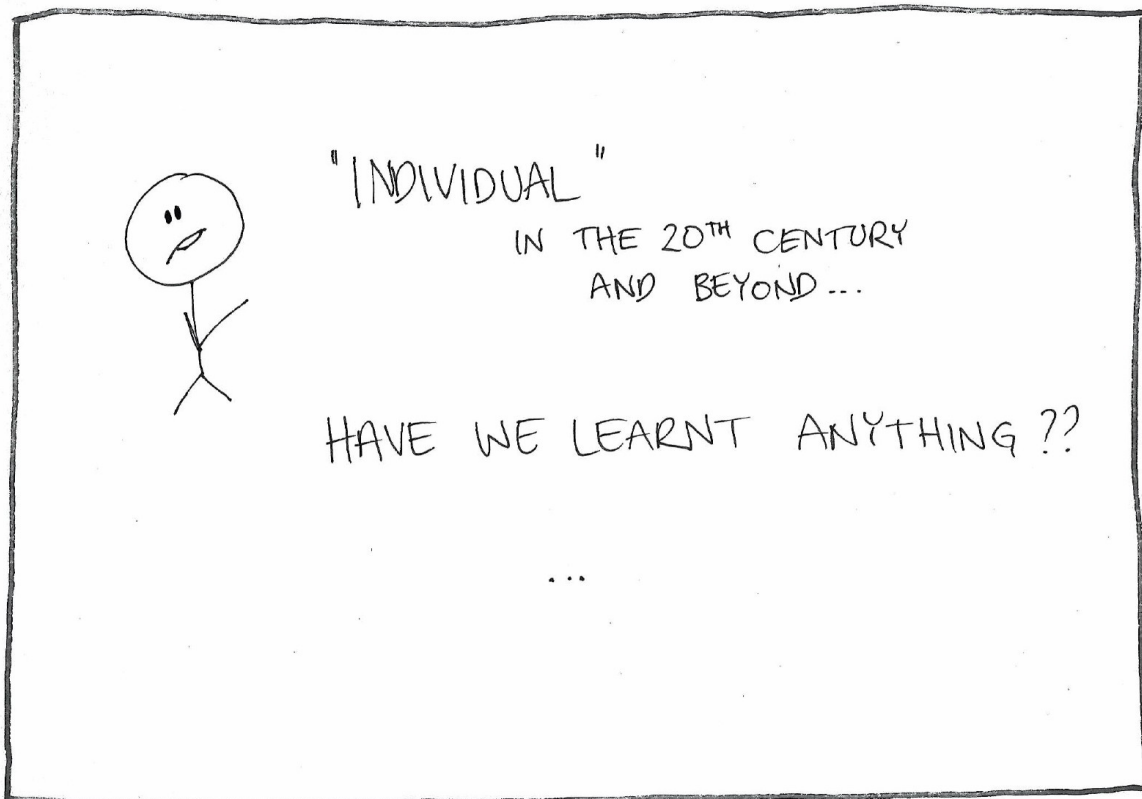 "INDIVIDUAL"
IN THE 20TH CENTURY
AND BEYOND...
HAVE WE LEARNT ANYTHING??
...